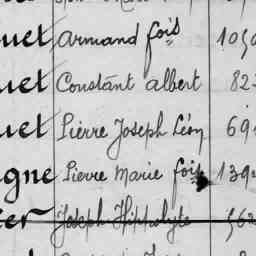 uet Armand fois 1050
uet Constant albert 82
uet Pierre Joseph Léon 69
gne Pierre Marie fois 139
er Joseph Hippolyte 563